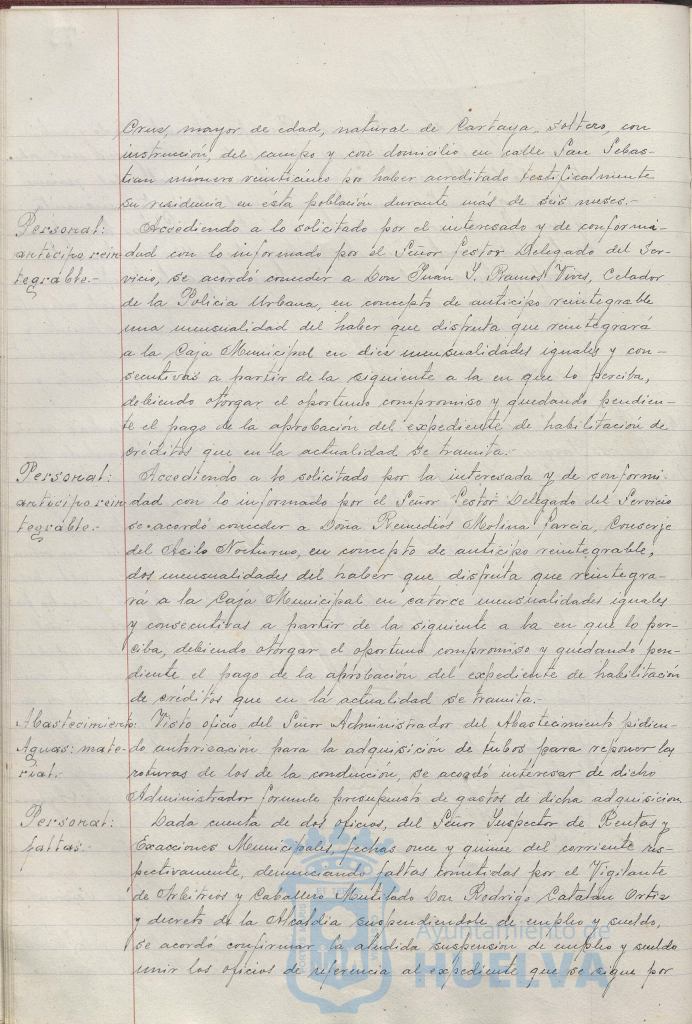 Cruz, mayor de edad, natural de Cartaya, soltero, con
instrucción, del campo y con domicilio en calle San Sebas-
tian número veinticinco por haber acreditado testificalmente
su residencia en ésta población durante más de seis meses.-
Personal:
anticipo rein
tegrable.-
Accediendo a lo solicitado por el interesado y de conformi-
dad con lo informado por el Señor Gestor Delegado del Ser-
vicio, se acordó conceder a Don Juán J. Ramos Vives, Celador
de la Policia Urbana, en concepto de anticipo reintegrable
una mensualidad del haber que disfruta que reintegrará
a la Caja Municipal en diez mensualidades iguales y con-
secutivas a partir de la siguiente a la en que lo perciba,
debiendo otorgar el oportuno compromiso y quedando pendien-
te el pago de la aprobación del expediente de habilitación de
créditos que en la actualidad se tramita.-
Personal:
anticipo rein
tegrable.-
Accediendo a lo solicitado por la interesada y de conformi-
dad con lo informado por el Señor Gestor Delegado del Servicio
se acordó conceder a Doña Remedios Molina García, Conserje
del Asilo Nocturno, en concepto de anticipo reintegrable,
dos mensualidades del haber que disfruta que reintegra-
rá a la Caja Municipal en catorce mensualidades iguales
y consecutivas a partir de la siguiente a la en que lo per-
ciba, debiendo otorgar el oportuno compromiso y quedando pen-
diente el pago de la aprobación del expediente de habilitación
de créditos que en la actualidad se tramita.-
Abastecimiento
Aguas: mate-
rial.-
Visto oficio del Señor Administrador del Abastecimiento pidien-
do autorización para la adquisición de tubos para reponer las
roturas de los de la conducción, se acordó interesar de dicho
Administrador formule presupuesto de gastos de dicha adquisición
Personal:
faltas.-
Dada cuenta de dos oficios, del Señor Inspector de Rentas y
Exacciones Municipales, fechas once y quince del corriente res-
pectivamente, denunciando faltas cometidas por el Vigilante
de Arbitrios y Caballero Mutilado Don Rodrigo Catalán Ortiz
y decreto de la Alcaldia suspendiendole de empleo y sueldo,
se acordó confirmar la aludida suspensión de empleo y sueldo
unir los oficios de referencia al expediente que se sigue por
Ayuntamiento de
HUELVA